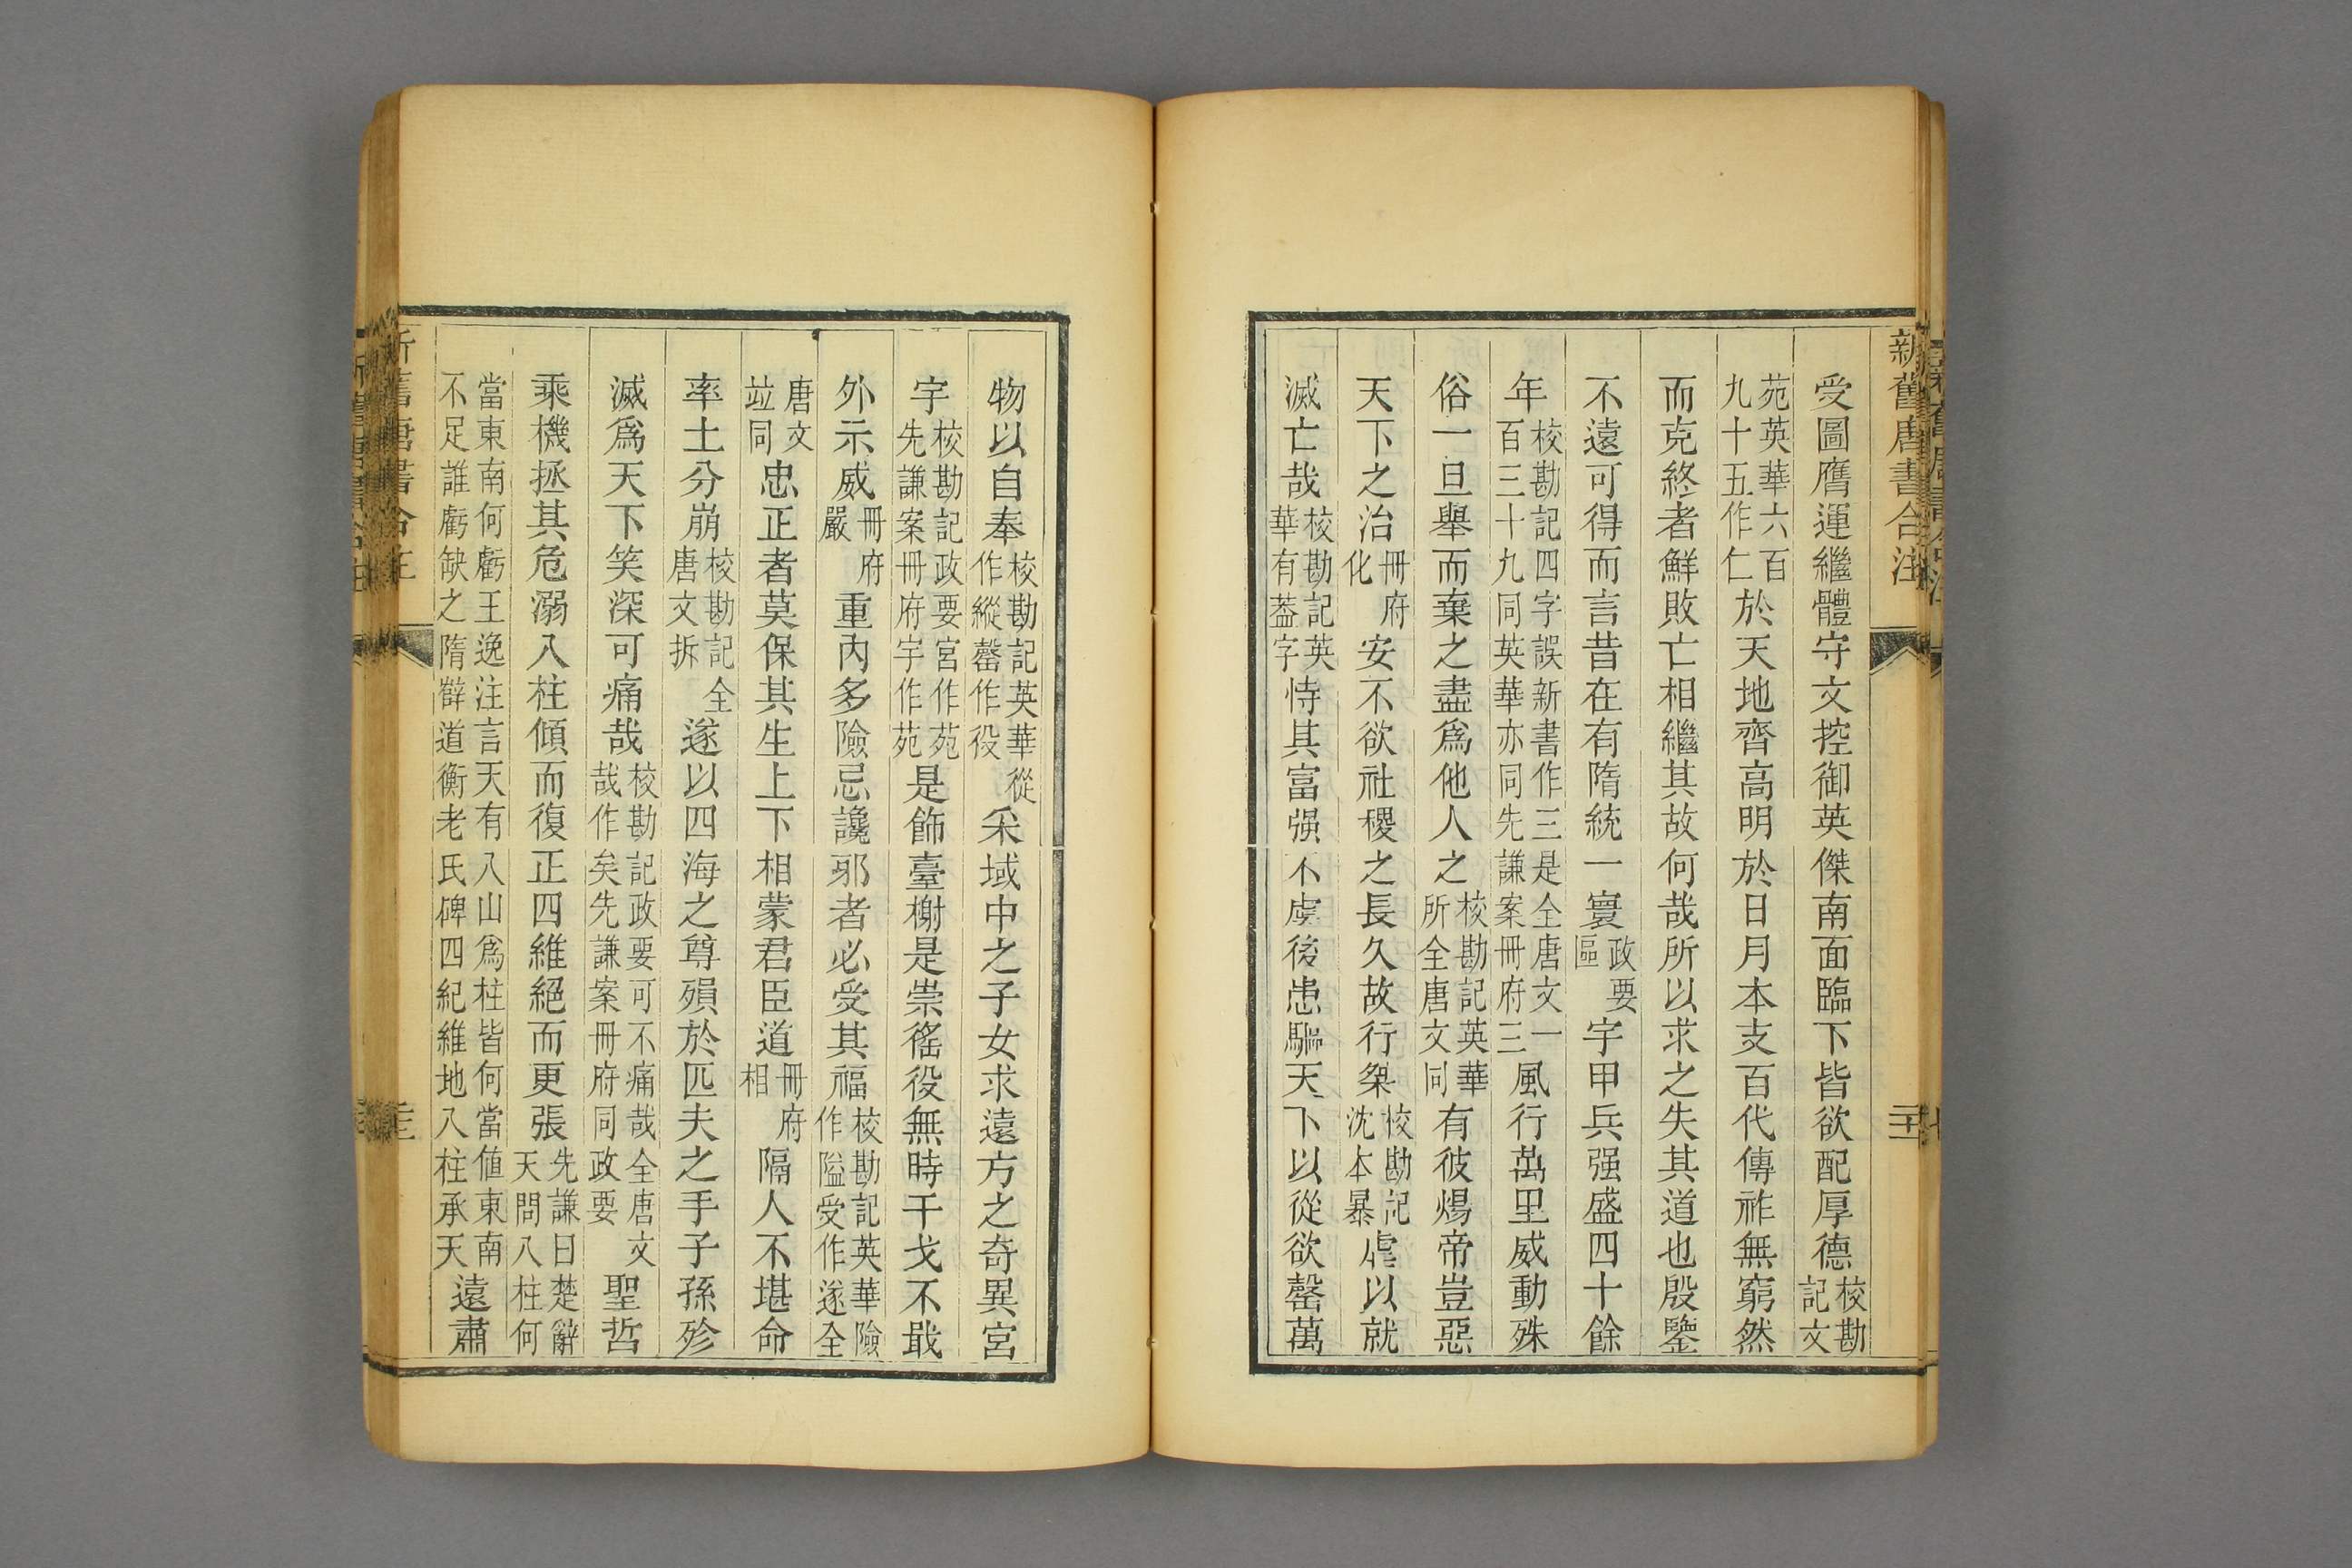 新舊唐書合注
受圖膺運繼體守文控御英傑南面臨下皆欲配厚德校勘記文
苑英華六百九十五作仁於天地齊高明於日月本支百代傳祚無窮然
而克終者鮮敗亡相繼其故何哉所以求之失其道也殷鑒
不遠可得而言昔在有隋統一寰政要區宇甲兵强盛四十餘
年校勘記四字誤新書作三是全唐文一百三十九同英華亦同先謙案冊府三風行萬里威動殊
俗一旦舉而棄之盡爲他人之校勘記英華所全唐文同有彼煬帝豈惡
天下之治冊府化安不欲社稷之長久故行桀校勘記沈本暴虐以就
滅亡哉校勘記英華有葢字恃其富强不虞後患驅天下以從欲罄萬
物以自奉校勘記英華從作縱罄作役采域中之子女求遠方之奇異宮
宇校勘記政要宮作苑先謙案冊府宇作苑是飾臺榭是崇徭役無時干戈不戢
外示威冊府嚴重內多險忌讒邪者必受其福校勘記英華險作隘受作遂全
唐文竝同忠正者莫保其生上下相蒙君臣道冊府相隔人不堪命
率土分崩校勘記全唐文拆遂以四海之尊殞於匹夫之手子孫殄
滅爲天下笑深可痛哉校勘記政要可不痛哉全唐文哉作矣先謙案冊府同政要聖哲
乘機拯其危溺八柱傾而復正四維絕而更張先謙曰楚辭天問八柱何
當東南何虧王逸注言天有八山爲柱皆何當値東南不足誰虧缺之隋辥道衡老氏碑四紀維地八柱承天遠肅
新舊唐書合注